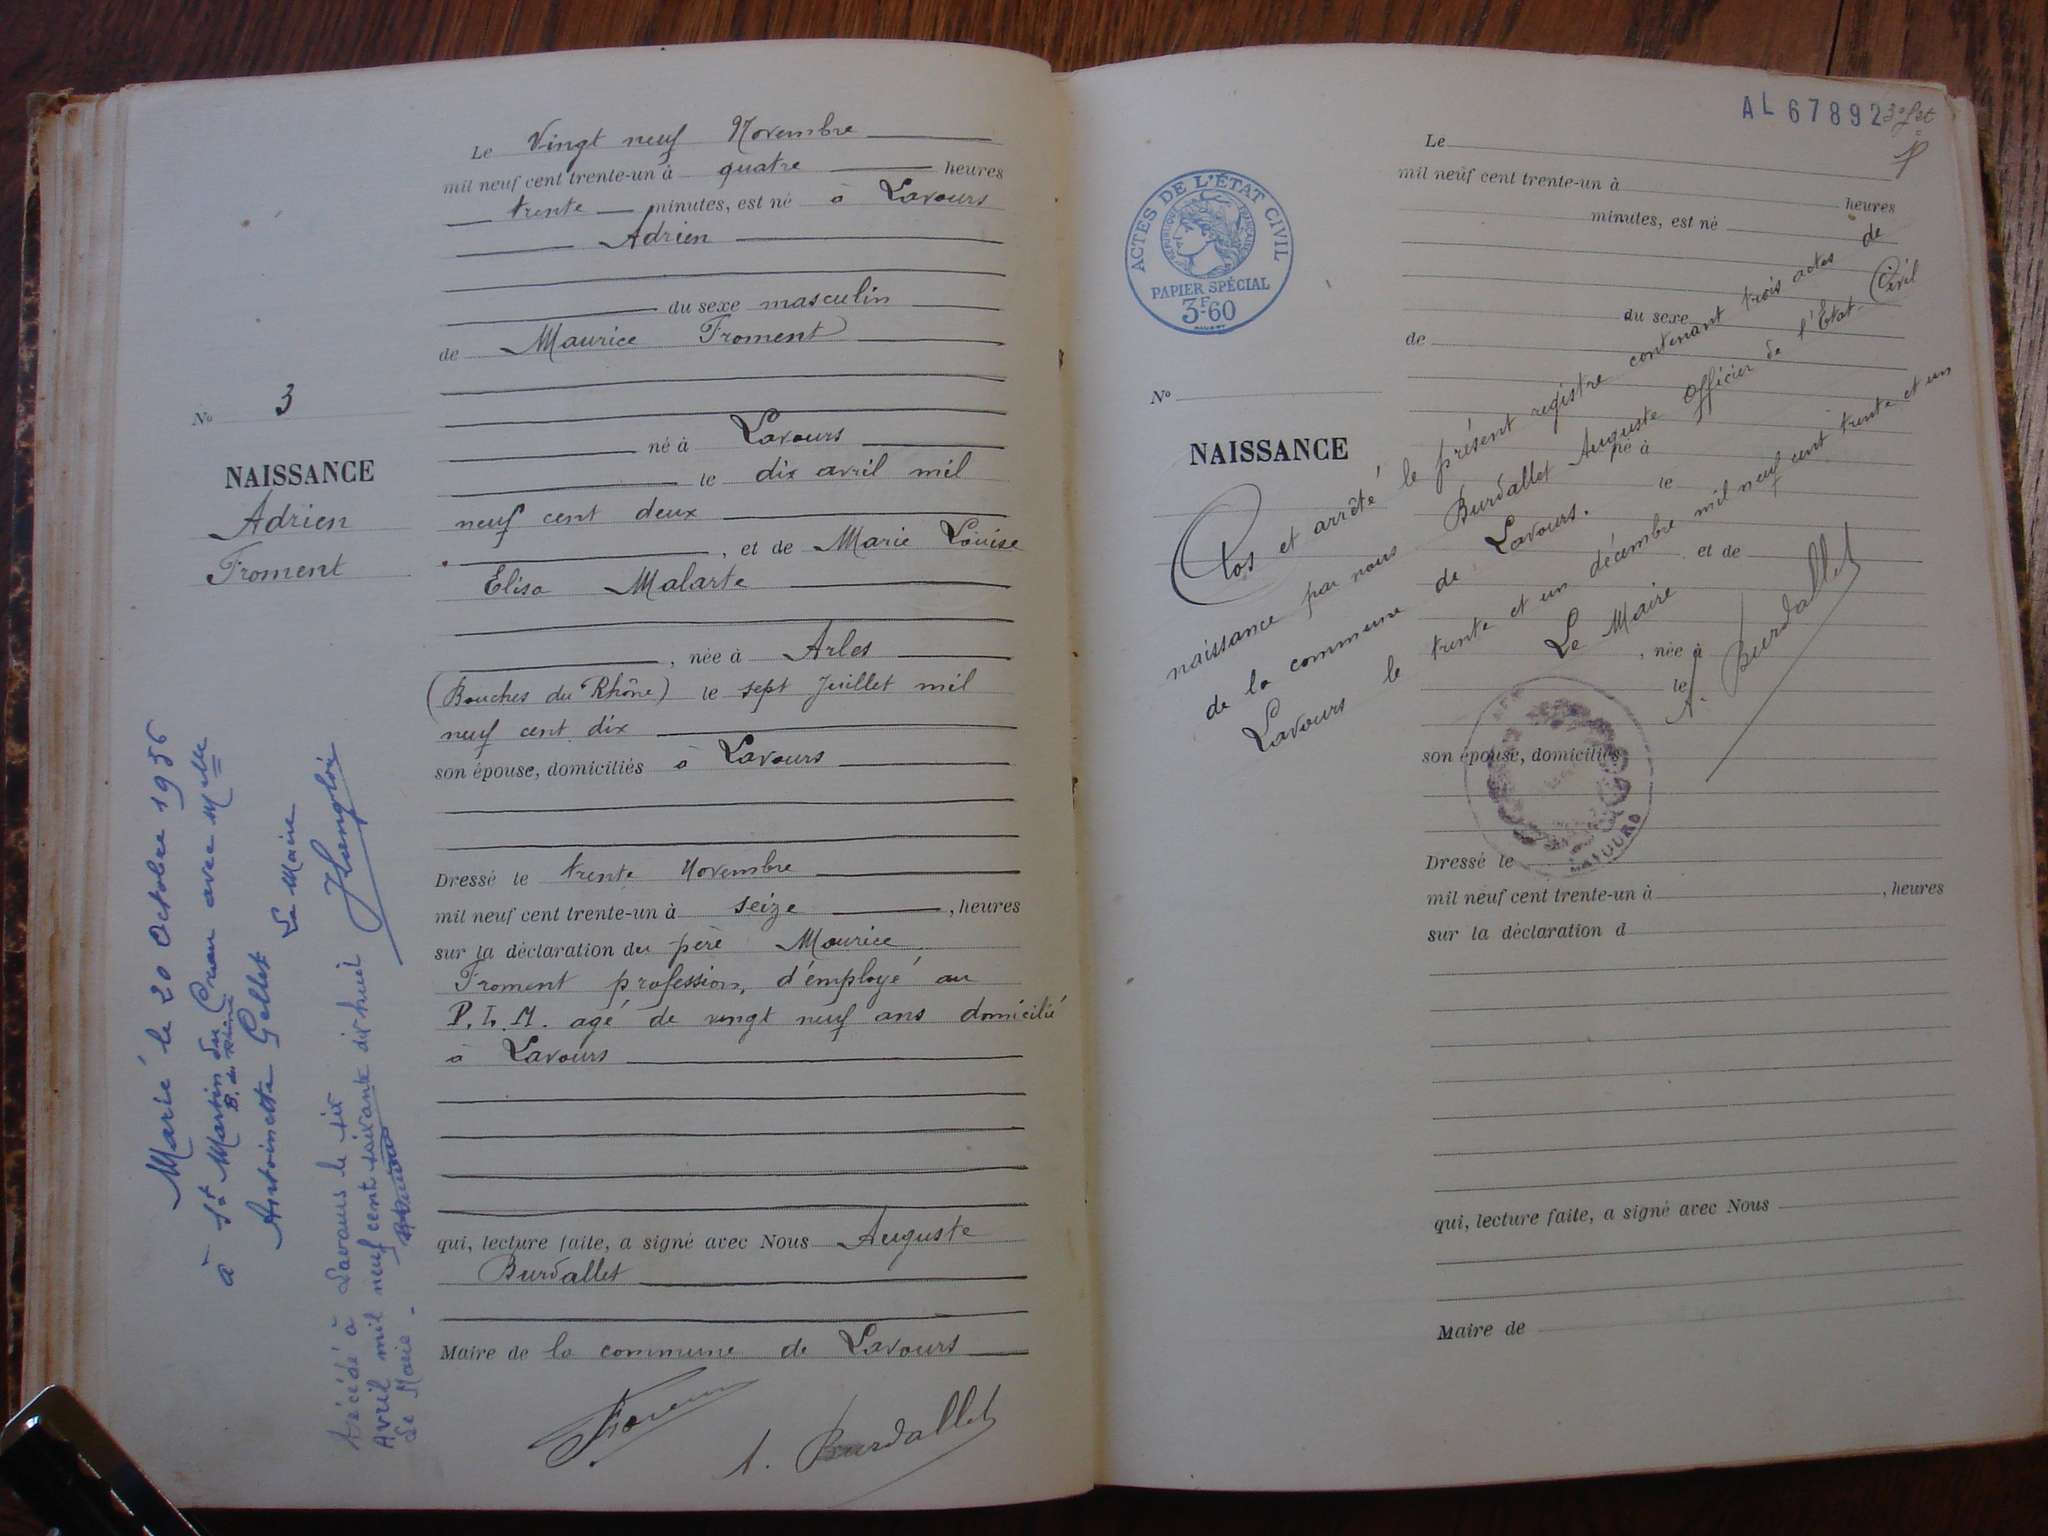 Le Vingt neuf Novembre
mil neuf cent trente-un à quatre heures
trente minutes, est né à Lavours
Adrien
du sexe masculin
de Maurice Froment
né à Lavours
le dix avril mil
neuf cent deux
, et de Marie Louise
Elisa Malarte
, née à Arles
(Bouches du Rhône) le sept Juillet mil
neuf cent dix
son épouse, domiciliés à Lavours
Dressé le trente Novembre
mil neuf cent trente-un à seize , heures
sur la déclaration du père Maurice
Froment profession, d'employé au
P. L. M. agé de vingt neuf ans domicilié
à Lavours
qui, lecture faite, a signé avec Nous Auguste
Burdallet
Maire de la commune de Lavours
A. Burdallet
No 3
NAISSANCE
Adrien
Froment
Marié le 20 Octobre 1956
à St Martin du Cruau avec Melle
B. du Rhône
Antoinette Gellet
Le Maire
Décédé à Lavours le six
Avril mil neuf cent soixante dix huit
Le Maire -
AL 67892
ACTES DE L'ÉTAT CIVIL
RÉPUBLIQUE FRANÇAISE
PAPIER SPÉCIAL
3F.60
No
NAISSANCE
Le
mil neuf cent trente-un à
heures
minutes, est né
du sexe
de
né à
le
et de
, née à
le
son épouse, domiciliés
Dressé le
mil neuf cent trente-un à , heures
sur la déclaration d
qui, lecture faite, a signé avec Nous
Maire de
Clos et arrêté le présent registre contenant trois actes de
naissance par nous Burdallet Auguste Officier de l'Etat-Civil
de la commune de Lavours.
Lavours le trente et un décembre mil neuf cent trente et un
Le Maire
A. Burdallet